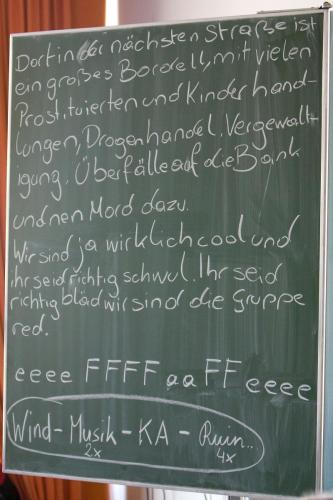 Dort in der nächsten Straße ist
ein großes Bordell, mit vielen
Prostituierten und Kinderhand-
lungen, Drogenhandel, Vergewalt-
igung, Überfälle auf die Bank
und nen Mord dazu.
Wir sind ja wirklich cool und
ihr seid richtig schwul. Ihr seid
richtig bläd wir sind die Gruppe
red.
eeee FFFF aa FF eeee
Wind - Musik - KA - Ruin...
2x 4x